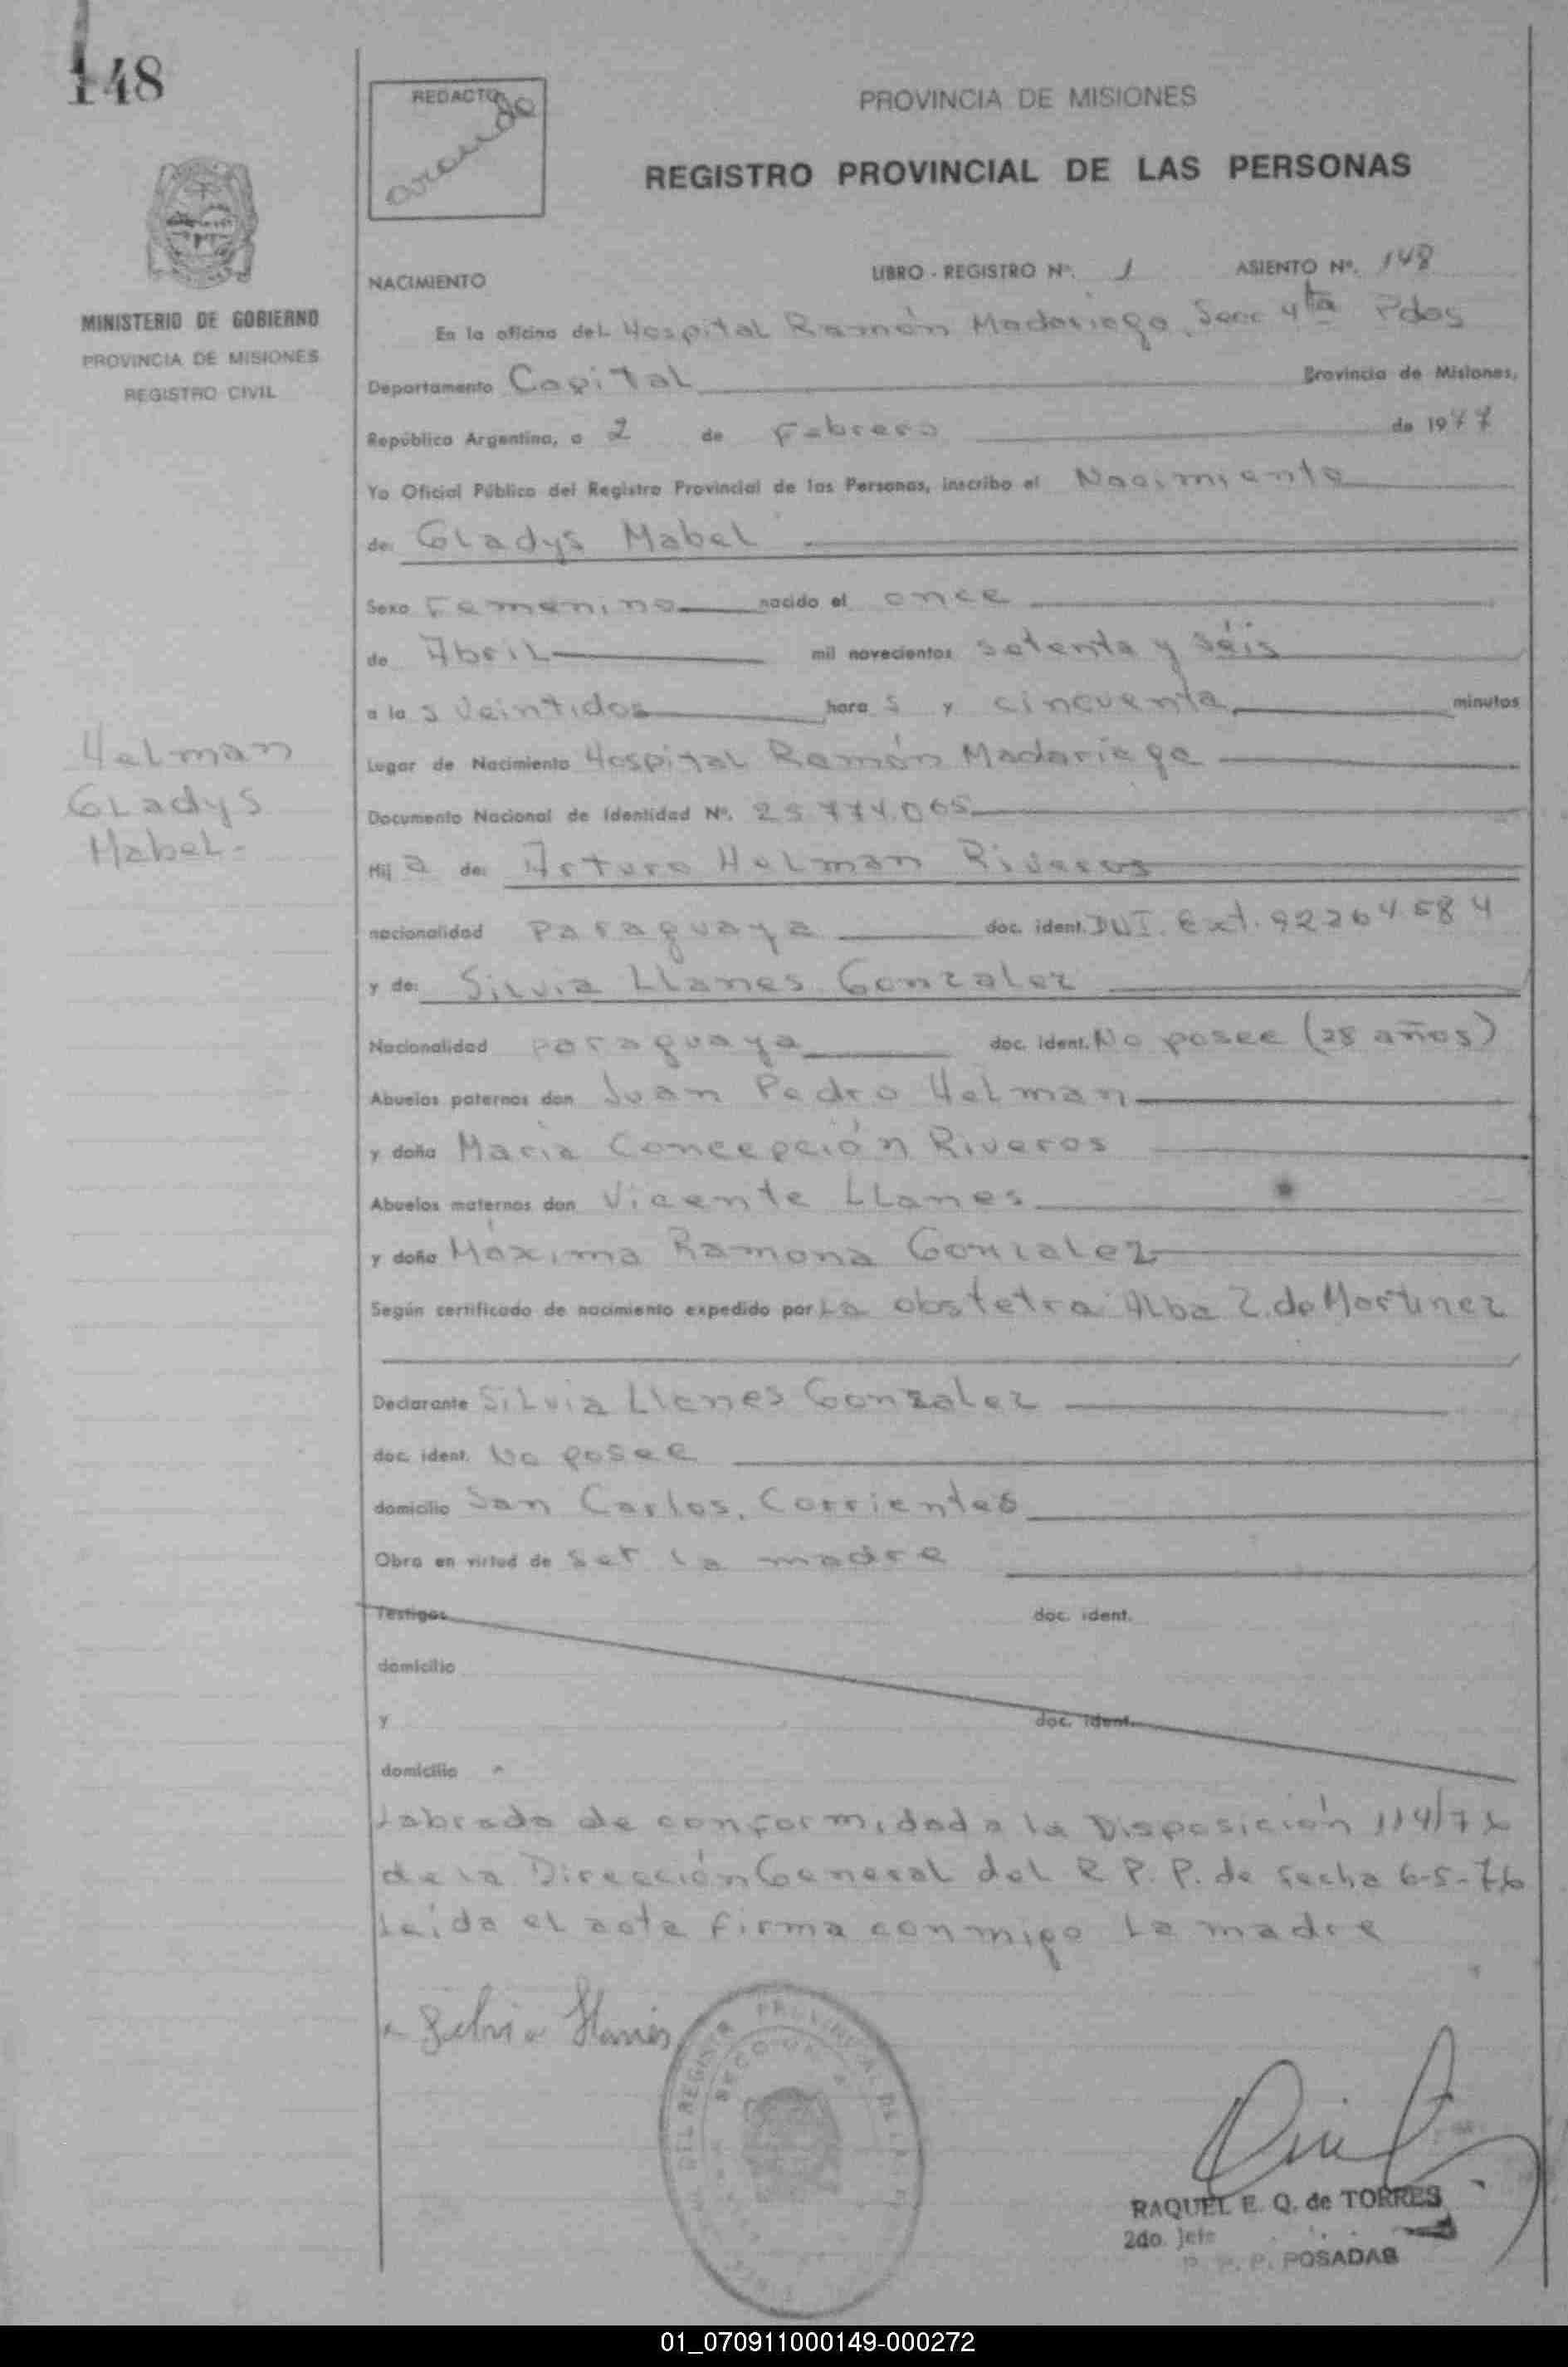 148
REDACTO
PROVINCIA DE MISIONES
REGISTRO PROVINCIAL DE LAS PERSONAS
MINISTERIO DE GOBIERNO
PROVINCIA DE MISIONES
REGISTRO CIVIL
NACIMIENTO LIBRO - REGISTRO Nº. 1 ASIENTO Nº. 148
En la oficina del Hospital Ramón Madariaga, Secc 4ta Pdas
Departamento Capital Provincia de Misiones,
República Argentina, a 2 de Febrero de 1977
Yo Oficial Público del Registro Provincial de las Personas, inscribo el Nacimiento
de: Gladys Mabel
Sexo Femenino nacido el once
de Abril mil novecientos setenta y séis
a la s veintidos hora s y cincuenta minutos
Helman
Gladys
Mabel-
Lugar de Nacimiento Hospital Ramón Madariaga
Documento Nacional de Identidad Nº. 25.774.065
Hij a de: Arturo Helman Riveros
nacionalidad paraguaya doc. ident. DNI. Ext. 92264584
y de: Silvia Llanes Gonzalez
Nacionalidad paraguaya doc. ident. No posee (28 años)
Abuelos paternos don Juan Pedro Helman
y doña Maria Concepción Riveros
Abuelos maternos don Vicente Llanes
y doña Máxima Ramona Gonzalez
Según certificado de nacimiento expedido por La obstetra Alba Z. de Martinez
Declarante Silvia Llanes Gonzalez
doc. ident. No posee
domicilio San Carlos, Corrientes
Obra en virtud de ser la madre
Testigos doc. ident.
domicilio
y doc. ident.
domicilio
Labrada de conformidad a la Disposición 114/76
de la Dirección General del R.P.P. de fecha 6-5-76
Leida el acta firma conmigo la madre
Silvia Llanes
RAQUEL E. Q. de TORRES
2do. Jefe
R. P. P. POSADAS
01_070911000149-000272